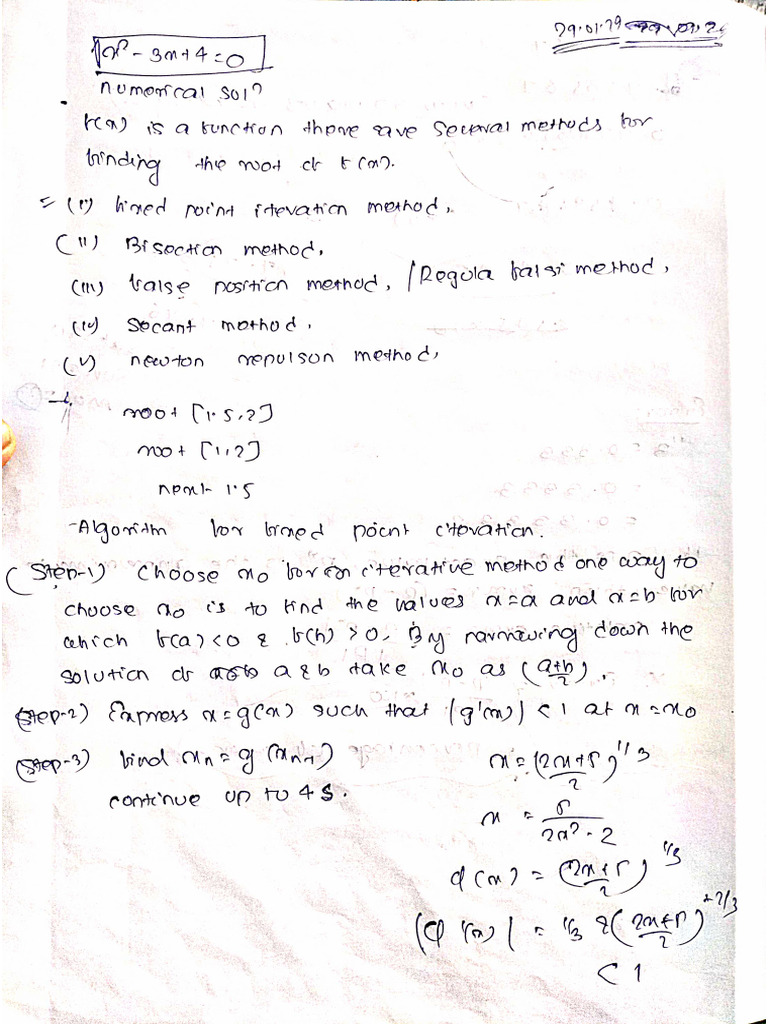 29.01.29
x² - 3x + 4 = 0
numerical solⁿ
f(x) is a function there are several methods for
finding the root of f(x).
= (i) fixed point iteration method,
(ii) Bisection method,
(iii) false position method, / Regula falsi method,
(iv) Secant method,
(v) newton repulson method,
root [1.5, 2]
root [1, 2]
next 1.5
Algorithm for fixed point iteration.
(Step-1) Choose x0 for an iterative method one way to
choose x0 is to find the values x=a and x=b for
which f(a) < 0 & f(b) > 0. By narrowing down the
solution of a & b take x0 as (a+b/2).
(Step-2) Express x = g(x) such that |g'(x)| < 1 at x = x0
(Step-3) find xn = g(xn-1)
continue up to 4s.
x = (2x+5/2)^1/3
x = 5/2x² - 2
φ(x) = (2x+5/2)^1/3
|φ'(x)| = 1/3 (2x+5/2)^-2/3
< 1